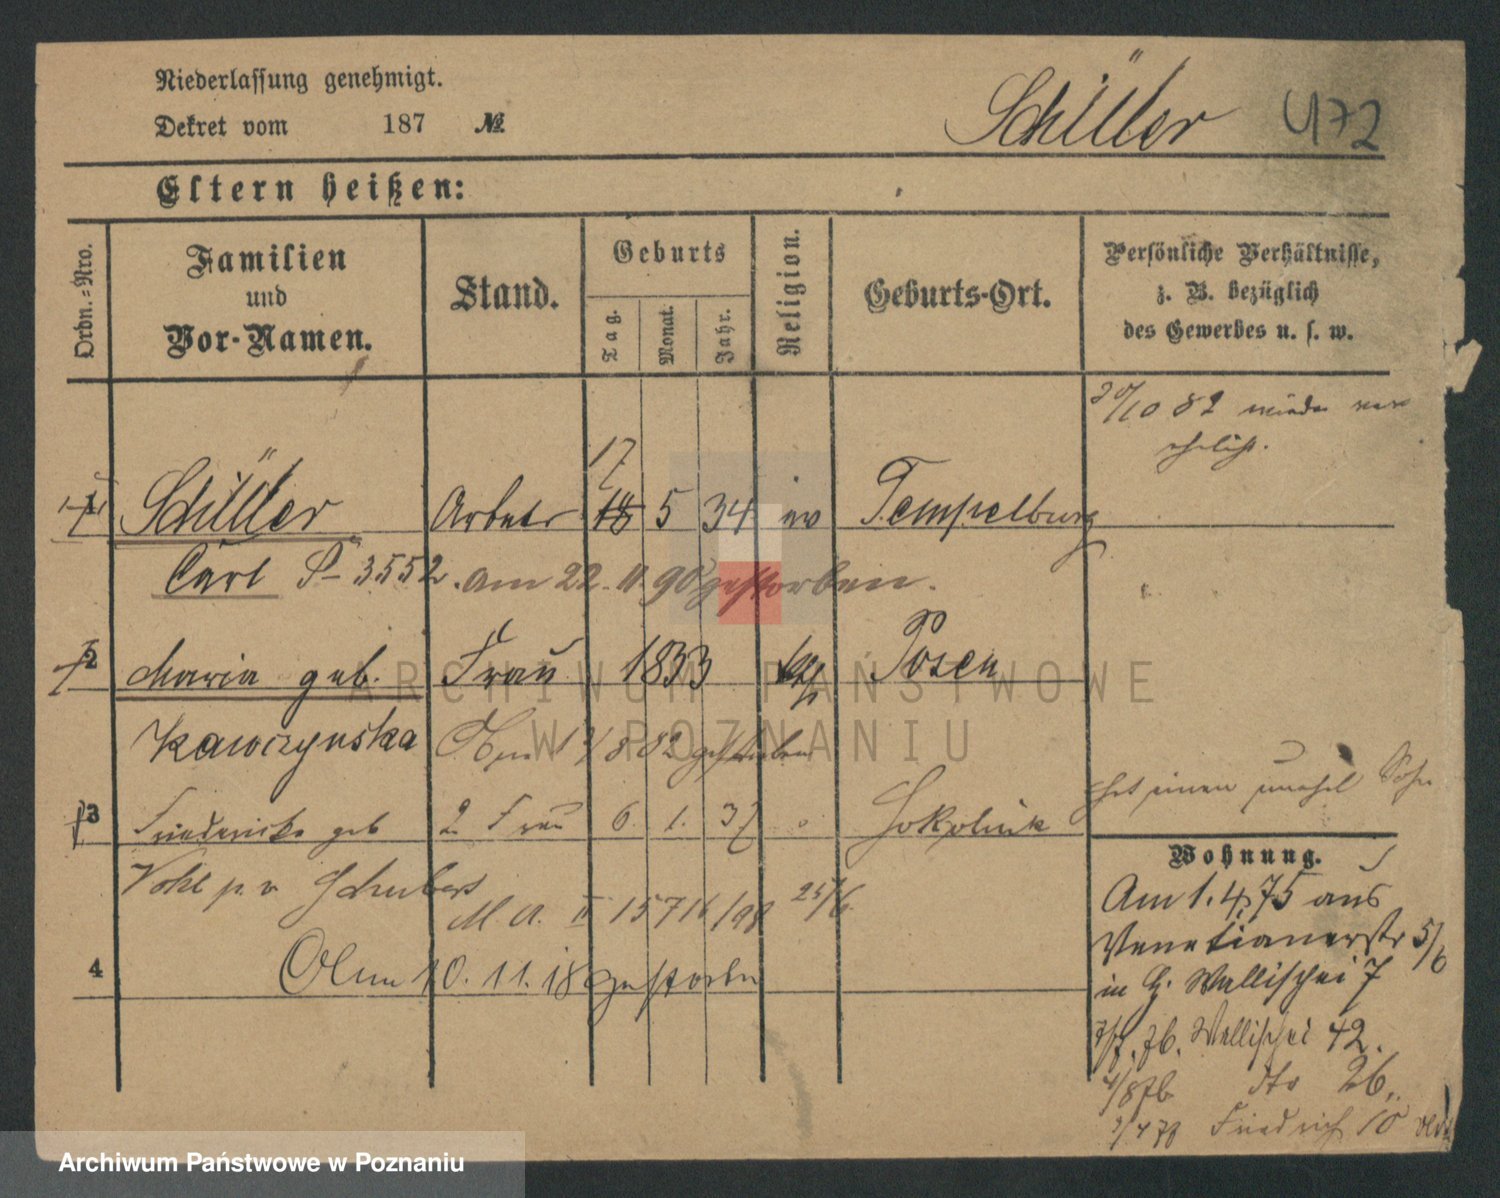 Niederlassung genehmigt.
Dekret vom 187 №
Schüller 472
Eltern heißen:
Ordn.=Nro.
Familien
und
Vor-Namen.
Stand.
Geburts
Tag.
Monat.
Jahr.
Religion.
Geburts-Ort.
Persönliche Verhältnisse,
z. B. bezüglich
des Gewerbes u. s. w.
30/10 82 wieder ver
ehelicht.
17
1 Schüller Arbeiter 18 5 34 ev Tempelburg
Carl P 3552. am 22. 11. 90 gestorben.
2 Maria geb. Frau 1833 Posen
Kawczynska 8 82 gestorben
hat einen unehel Sohn
3 Friedericke geb 2. Frau 6. 1. 37
Vohl p. v. Schubert
M. A. II 157 25/6
4 10. 11. 18 gestorben
Wohnung.
Am 1. 4. 75 aus
Venetianerstr 5/6
in Wallischei 7
7/7. 76. Wallischei 42.
4/8 76 dto 26,
Friedrich 10
ARCHIWUM PAŃSTWOWE
W POZNANIU
Archiwum Państwowe w Poznaniu